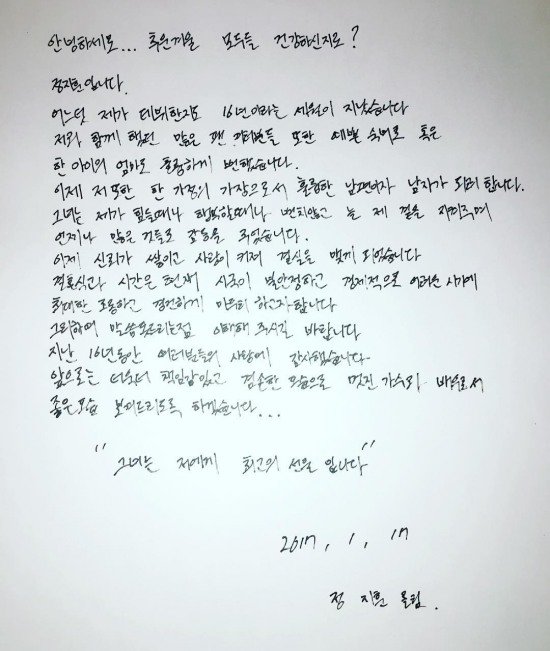 안녕하세요... 추운겨울 모두들 건강하신지요?
정지훈입니다.
어느덧 제가 데뷔한지도 16년이라는 세월이 지났습니다
저와 함께 했던 많은 팬 여러분들 또한 예쁜 숙녀로 혹은
한 아이의 엄마로 훌륭하게 변했습니다.
이제 저 또한 한 가정의 가장으로서 훌륭한 남편이자 남자가 되려 합니다.
그녀는 제가 힘들때나 행복할때나 변치않고 늘 제 곁을 지켜주며
언제나 많은것들로 감동을 주었습니다.
이제 신뢰가 쌓이고 사랑이 커져 결실을 맺게 되었습니다
결혼식과 시간은 현재 시국이 불안정하고 경제적으로 어려운 시기에
최대한 조용하고 경건하게 마무리 하고자합니다
그리하여 말씀못드리는점 이해해 주시길 바랍니다
지난 16년동안 여러분들의 사랑에 감사했습니다
앞으로는 더욱더 책임감있고 겸손한 모습으로 멋진 가수와 배우로서
좋은모습 보여드리도록 하겠습니다...
"그녀는 저에게 최고의 선물 입니다"
2017. 1. 17
정 지훈 올림.